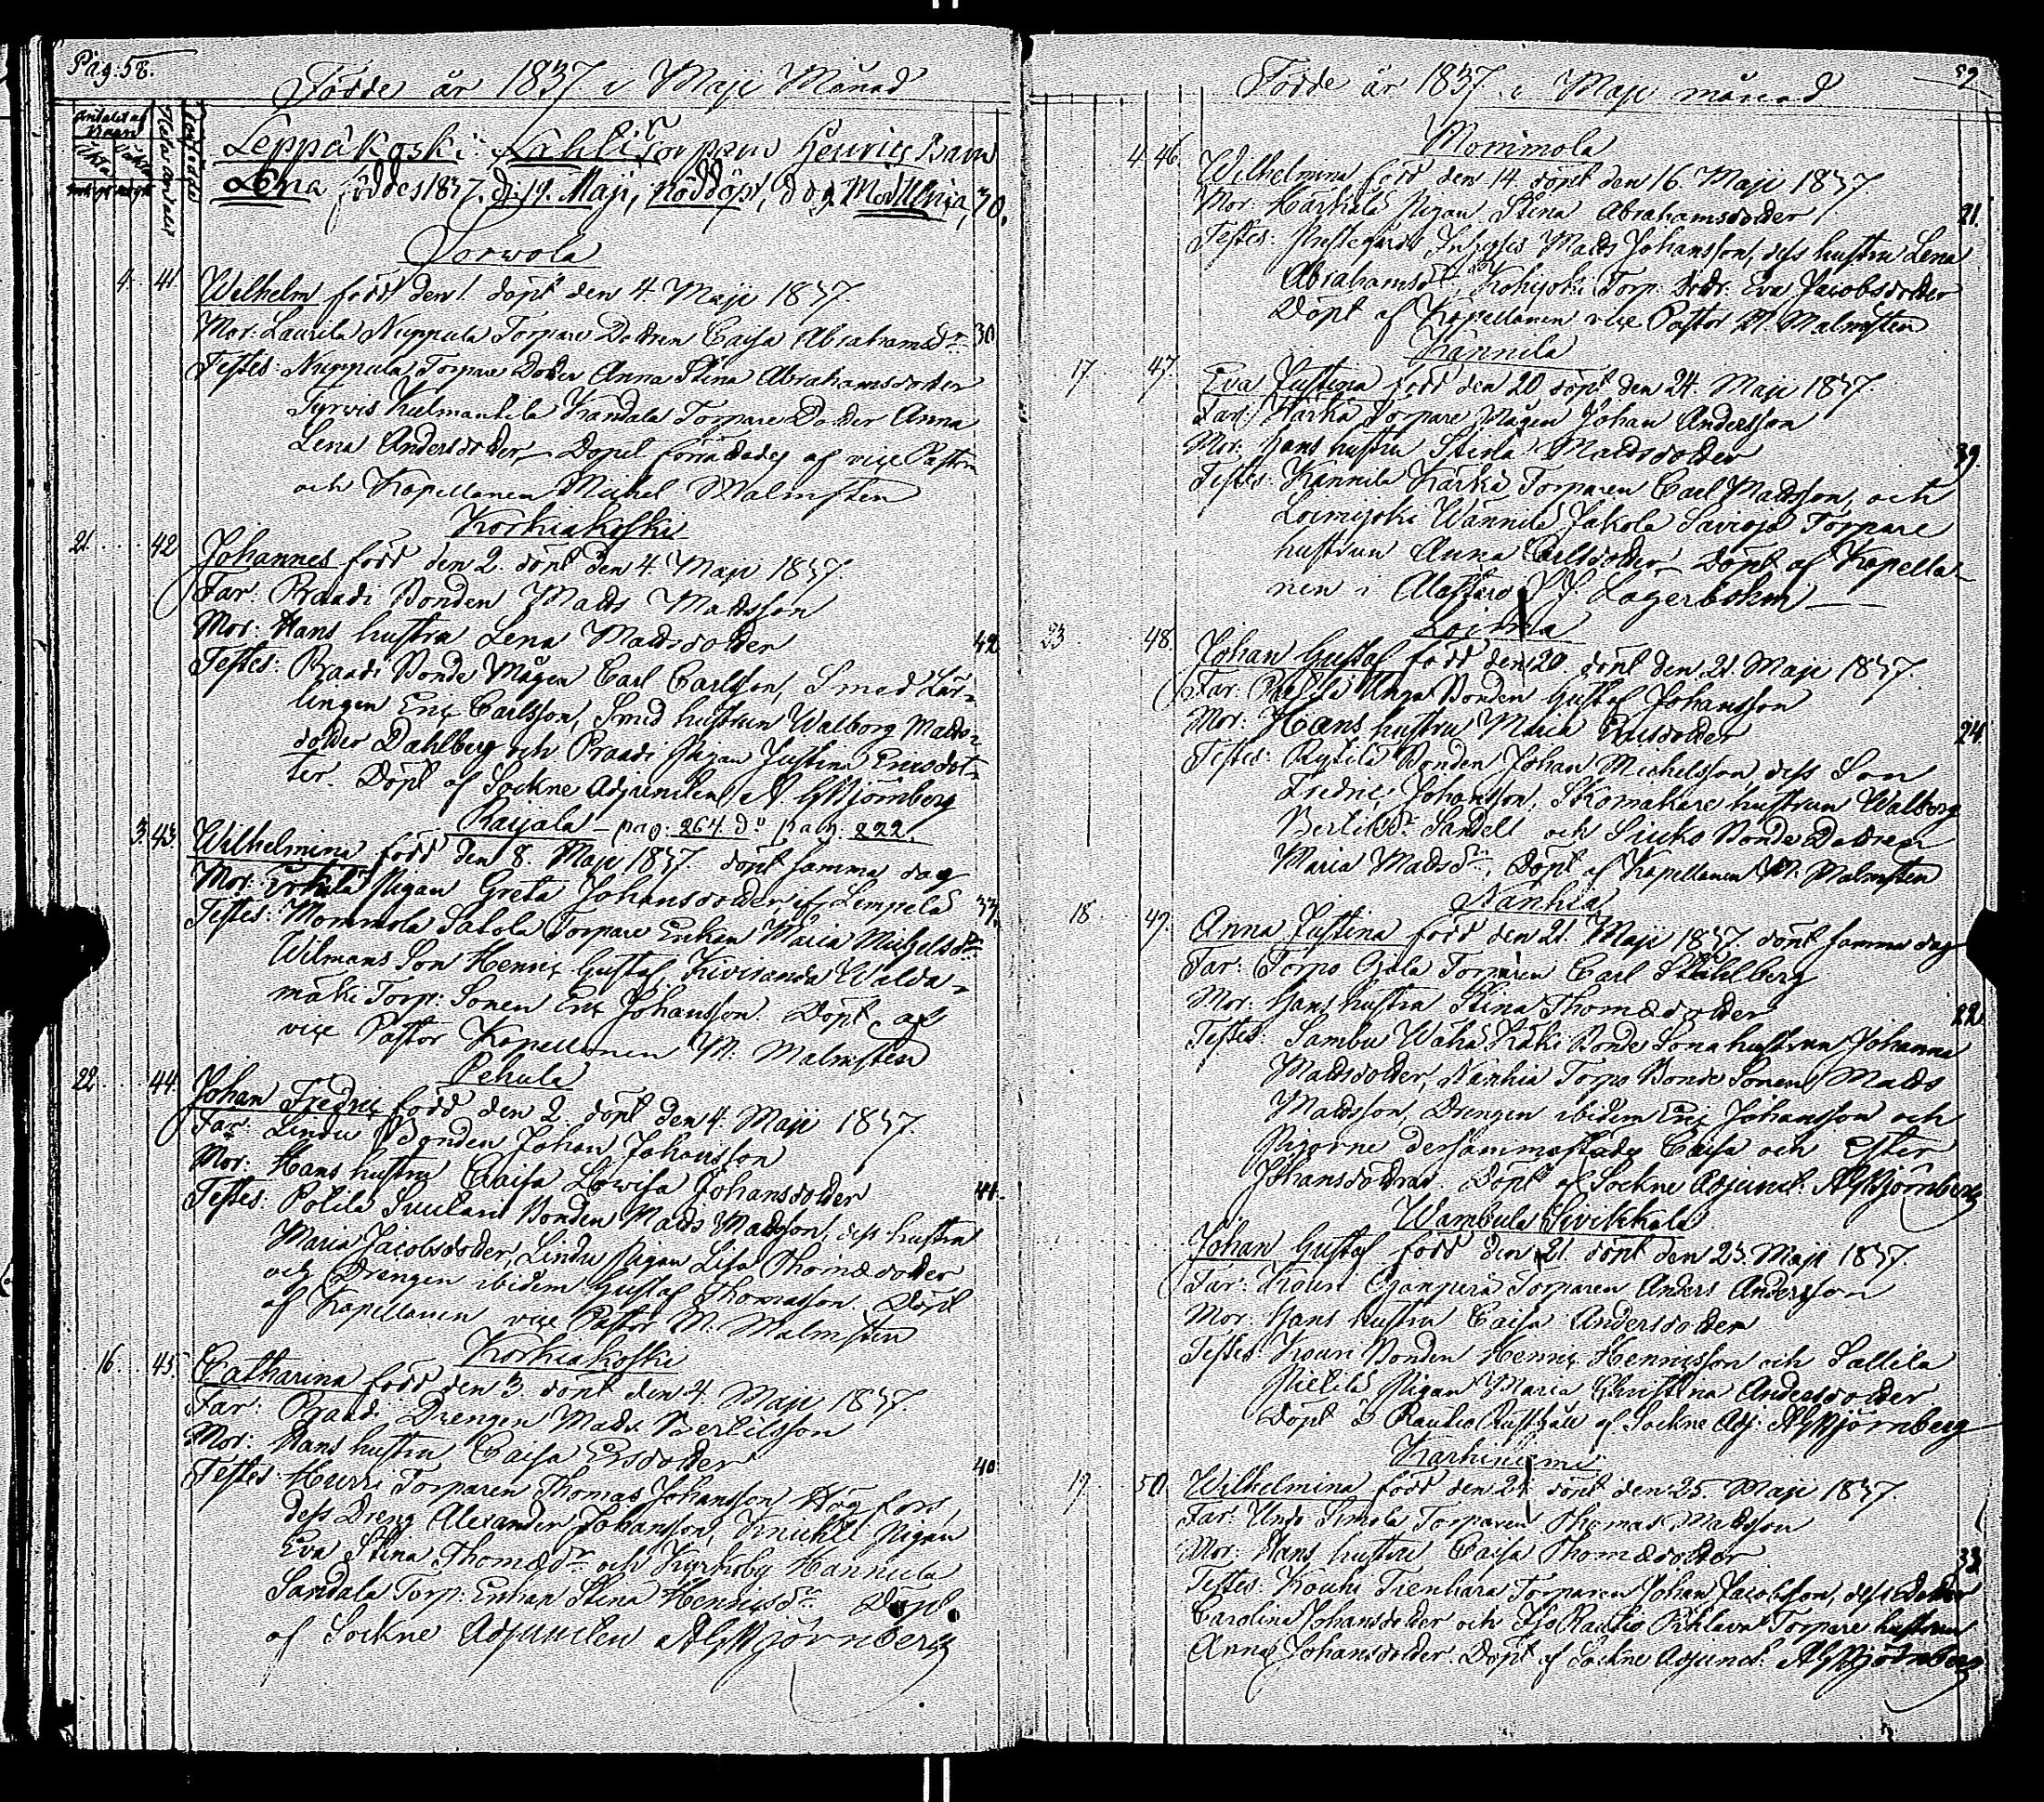 Pag: 58.
Födde år 1837 i Maji Månad
Antalet af
Barn
Leppäkoski: Lahti Torparen Henrics Barn
Lena föddes 1837. d. 19. Maji, nöddöpt, dog Mod Ulrica, 30.
Sorwola
4. 41. Wilhelm född den 1. döpt den 4. Maji 1837.
Mor: Laurila Nuppula Torpare Dottren Caisa Abrahamsdr 30
Testes: Nuppula Torpare Dotter Anna Stina Abrahamsdotter
Torpare Dotter Anna
Lena Andersdotter, Dopet förrättades af vice Pastorn
och Kapellanen Michel Malmsten
Korkiakoski
21. 42 Johannes född den 2. döpt den 4. Maji 1837.
Far: Praadi Bonden Matts Mattsson
Mor: Hans hustru Lena Mattsdotter 42
Testes: Praadi Bonde Mågen Carl Carlsson, Smed Lär-
lingen Eric Carlsson, Smed hustrun Walborg Matts-
dotter Dahlberg och Praadi Pigan Justina Ericsdot-
ter. Döpt af Sockne Adjuncten A. G. Björnberg
Raijala - pag. 264. do pag. 222.
3. 43. Wilhelmina född den 8. Maji 1837. döpt samma dag
Mor: Erkilä Pigan Greta Johansdotter if. Lempelä 37.
Testes: Mommola Torpare Enkan Maria Michelsdr
Wilmans Son Henric Gustaf, Kiviranda Walda-
mäki Torp: Sonen Eric Johansson. Döpt af
vice Pastor Kapellanen M. Malmsten
Pehula
22. 44. Johan Fredric född den 2. döpt den 4. Maji 1837.
Far: Lindu Bonden Johan Johansson
Mor: Hans hustru Caisa Lovisa Johansdotter 44.
Testes: Potila Suutari Bonden Matts Mattsson, dess hustru
Maria Jacobsdotter, Lindu Pigan Lisa Thomædotter
och Drengen ibidem Gustaf Thomasson. Döpt
af Kapellanen vice Pastor M. Malmsten
Korkiakoski
16. 45. Catharina född den 3. döpt den 4. Maji 1837.
Far: Praadi Drengen Matts Bertilsson
Mor: Hans hustru Caisa Ersdotter 40
Testes: Hurri Torparen Thomas Johansson Högfors,
dess Dreng Alexander Johansson, Pigan
Eva Stina Thomædr och Kyrkoby Hannula
Sandala Torp: Enkan Stina Henricsdr Döpt
af Sockne Adjuncten A. G. Björnberg
59
Födde år 1837. i Maji månad
Mommola
4 46. Wilhelmina född den 14. döpt den 16. Maji 1837
Mor: Härkälä Pigan Stina Abrahamsdotter 21.
Testes: Prestegårds Inhyses Matts Johansson, dess hustru Lena
Abrahamsdr, Torp. Dottr. Eva Jacobsdotter
Döpt af Kapellanen vice Pastor M. Malmsten
Kannila
17 47. Eva Justina född den 20. döpt den 24. Maji 1837.
Far: Kärki Torpare Mågen Johan Andersson
Mor: Hans hustru Stina Mattsdotter 39.
Testes: Kannila Kärki Torparen Carl Mattsson, och
Loimijoki Wännilä Jakola Torpare
hustrun Anna Carlsdotter, Döpt af Kapella-
nen i Alastaro Lagerbohm
Loima
23 48. Johan Gustaf född den 20. döpt den 21. Maji 1837.
Far: Unga Bonden Gustaf Johansson
Mor: Hans hustru Maria 24.
Testes: Rytilä Bonden Johan Michelsson, dess Son
Fredric Johansson, Skomakare hustrun Walborg
Bertilsdr Sandell och Bonde Dottren
Maria Mattsdr, Döpt af Kapellanen M. Malmsten
Nanhia
18 49. Anna Justina född den 21. Maji 1837. döpt samma dag
Far: Torpo Torparen Carl Ståhlberg
Mor: Hans hustru Stina Thomædotter 22.
Testes: Sambu Wähä Käki Bonde Sona hustrun Johanna
Mattsdotter, Nanhia Torpo Bonde Sonen Matts
Mattsson, Drengen ibidem Eric Johansson och
Pigorne dersammastädes Caisa och Ester
Johansdöttrar. Döpt af Sockne Adjunct: A. G. Björnberg
Wambula Sivikkala
Johan Gustaf född den 21. döpt den 23. Maji 1837.
Far: Kouri Ojanperä Torparen Anders Andersson
Mor: Hans hustru Caisa Andersdotter
Testes: Kouri Bonden Henric Henricsson och Sallila
Pietilä Pigan Maria Christina Andersdotter
Döpt å Rautio Rusthåll af Sockne Adj. A. G. Björnberg
Karhiniemi
19 50 Wilhelmina född den 21. döpt den 25. Maji 1837.
Far: Torparen Thomas Mattsson
Mor: Hans hustru Caisa Thomædotter 33
Testes: Kouhi Tienhara Torparen Johan Jacobsson, dess Dotter
Carolina Johansdotter och Iso Rautio Torpare hustrun
Anna Johansdotter. Döpt af Sockne Adjunct: A. G. Björnberg